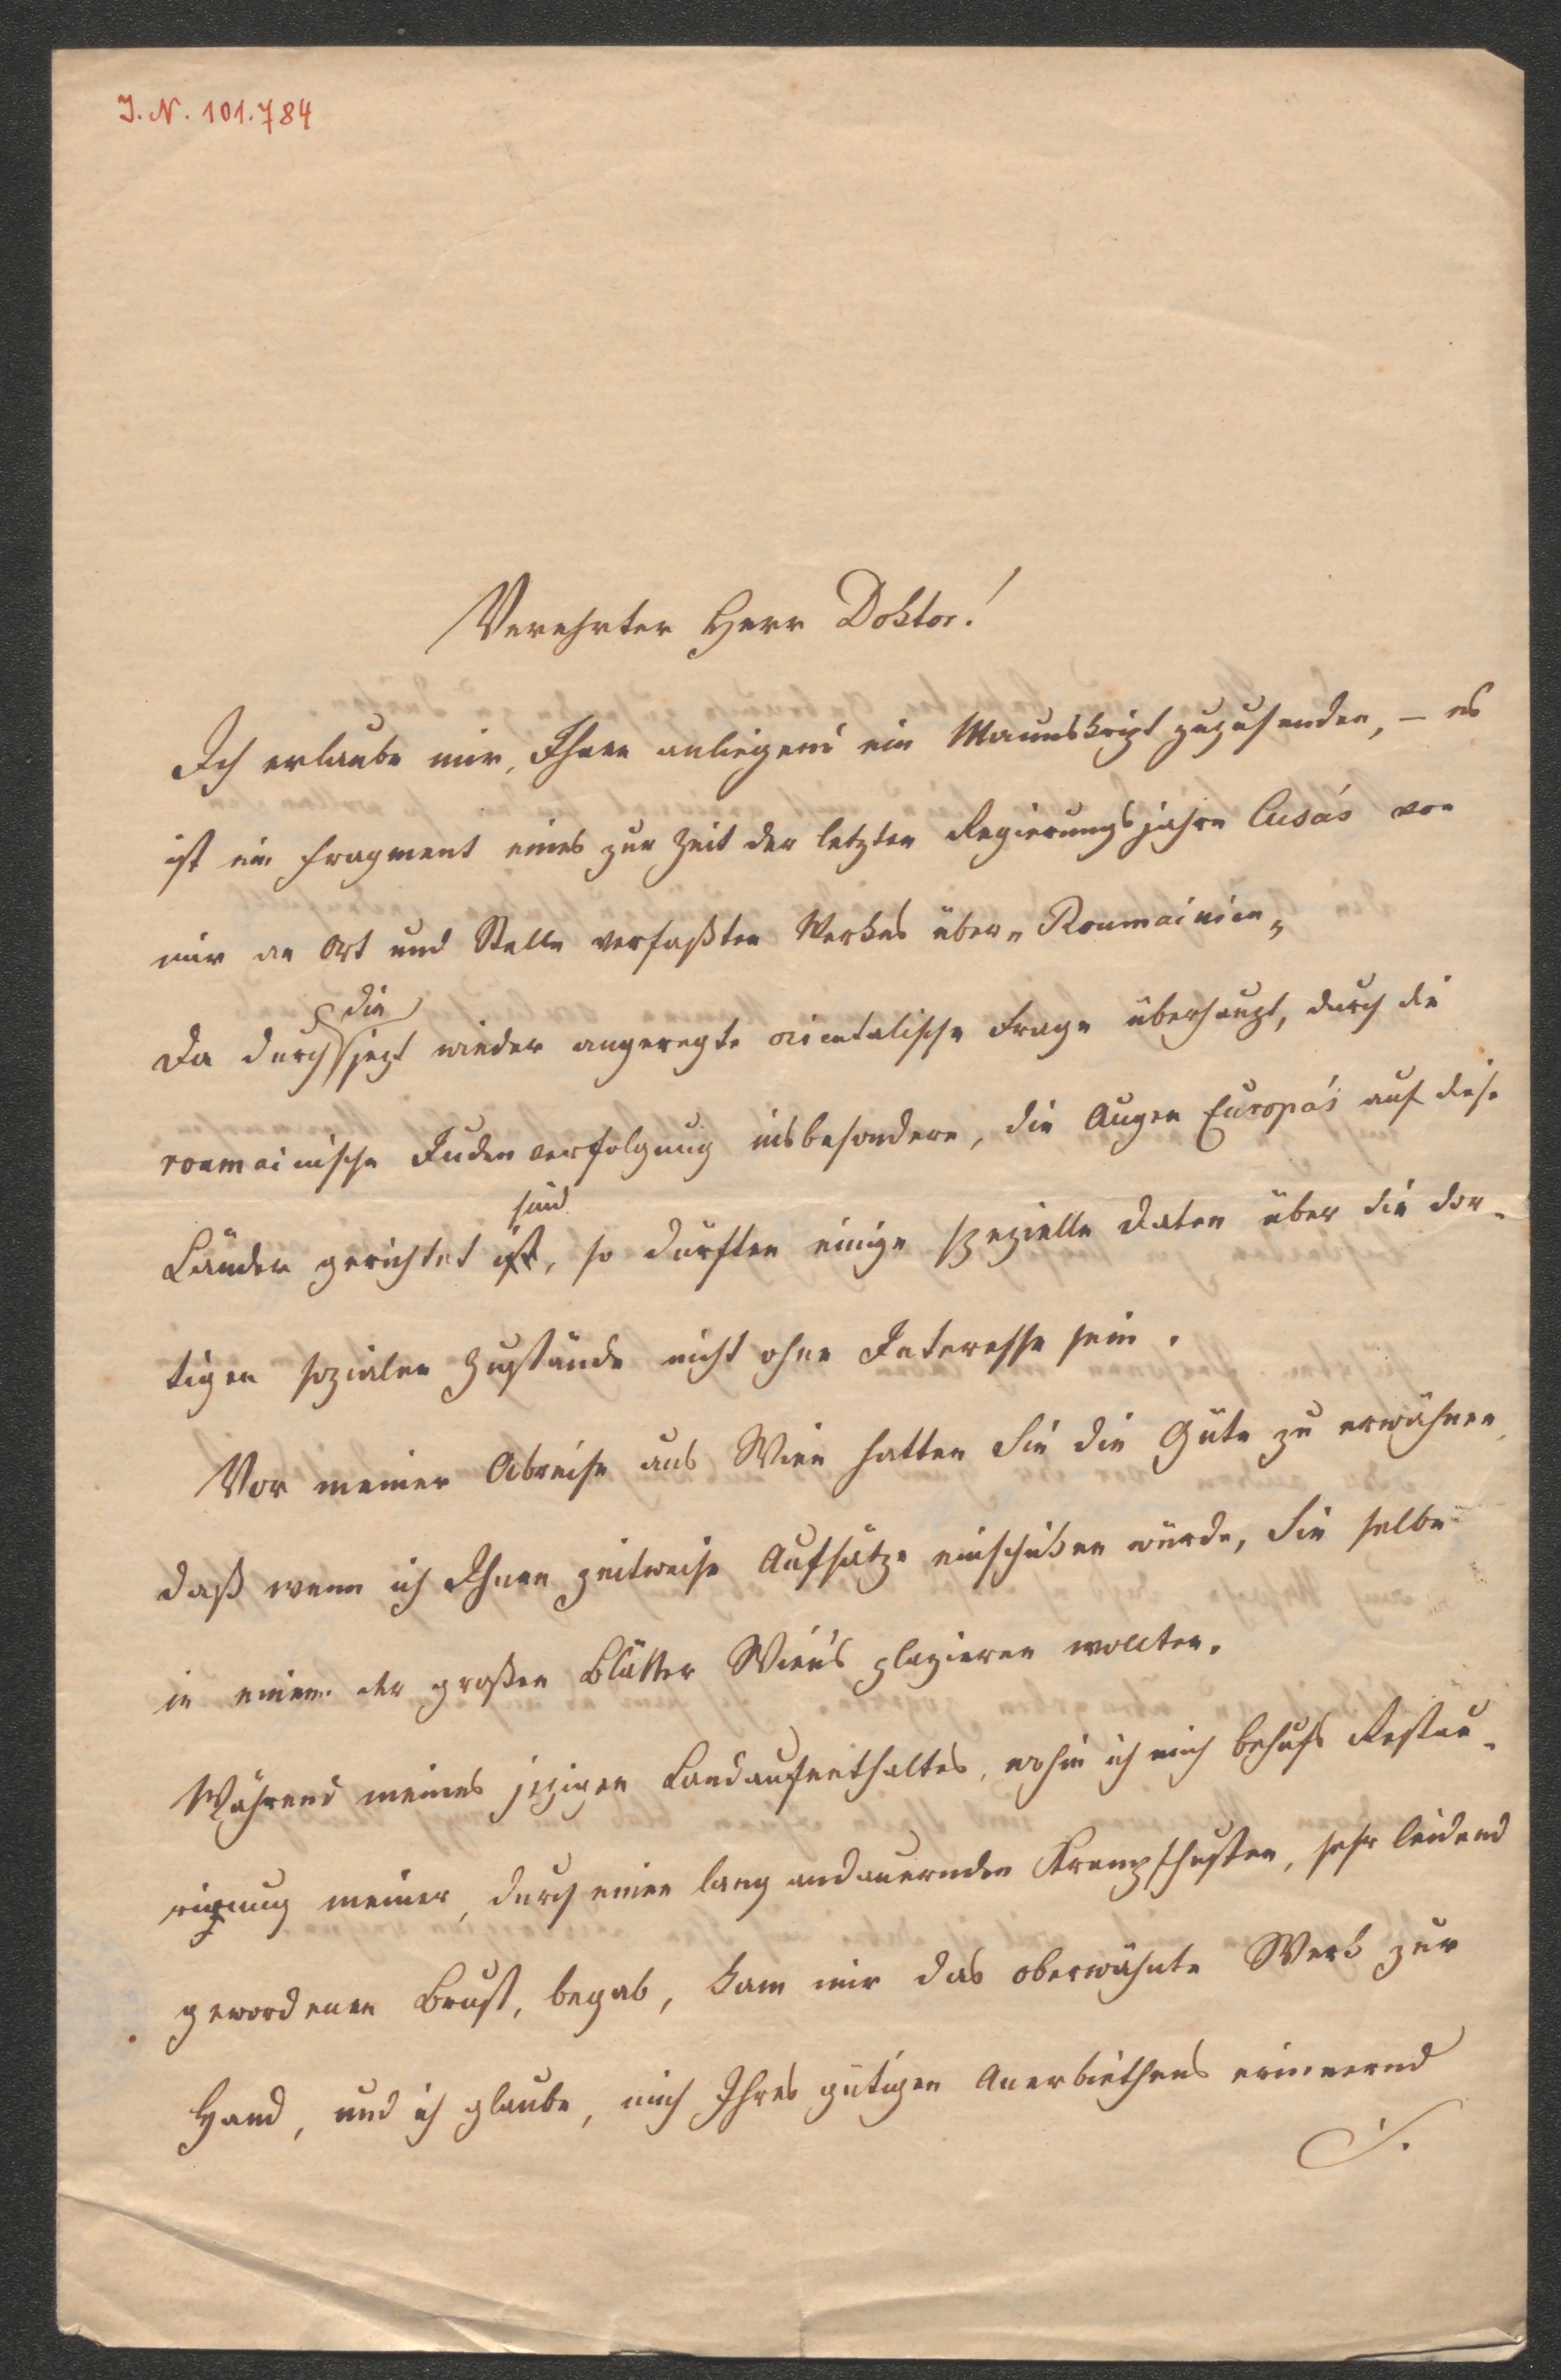 J. N. 101.784
Verehrter Herr Doktor!
Ich erlaube mir, Ihnen anliegend ein Manuskript zuzusenden, – es
ist ein Fragment eines zur Zeit der letzten Regierungsjahre Cusa's von
mir an Ort und Stelle verfaßten Werkes über „Roumainien„
die
Da durch jezt wieder angeregte orientalische Frage überhaupt, durch die
roumainische Judenverfolgung insbesondere, die Augen Europa's auf diese
sind
Länder gerichtet ist, so durften einige spezielle Daten über die dor-
tigen sozialen Zustände nicht ohne Interesse sein.
Vor meiner Abreise aus Wien hatten Sie die Güte zu erwähnen,
daß wenn ich Ihnen zeitweise Aufsätze einschiken würde, Sie selbe
in einem der großen Blätter Wien's plazieren wollten.
Während meines jezigen Landaufenthaltes, wohin ich mich behufs Restau-
rirung meiner, durch einen lang andauernden Krampfhusten, sehr leidend
gewordenen Brust, begab, kam mir das oberwähnte Werk zur
Hand, und ich glaube, mich Ihres gütigen Anerbiethens erinnernd